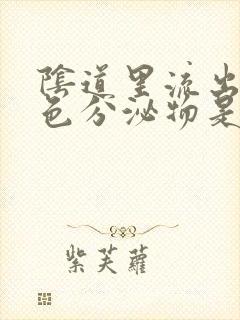 陰道里流出
色分泌物是
紫芙蘿